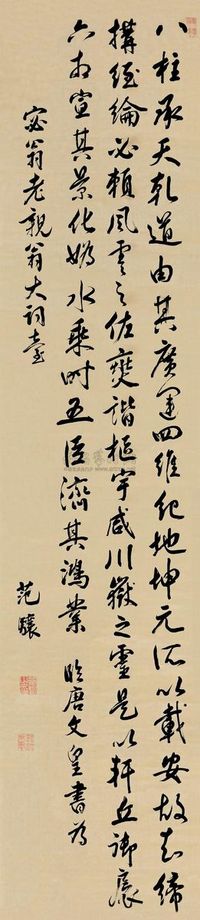 八柱承天乾道由其廣運四維紀地坤元所以載安故知締
搆經綸必賴風雲之佐爕諧樞宇咸川嶽之靈是以軒丘御扆
六相宣其景化媯水乘時五臣濟其鴻業 臨唐文皇書為
宓翁老親翁大詞臺
范驤